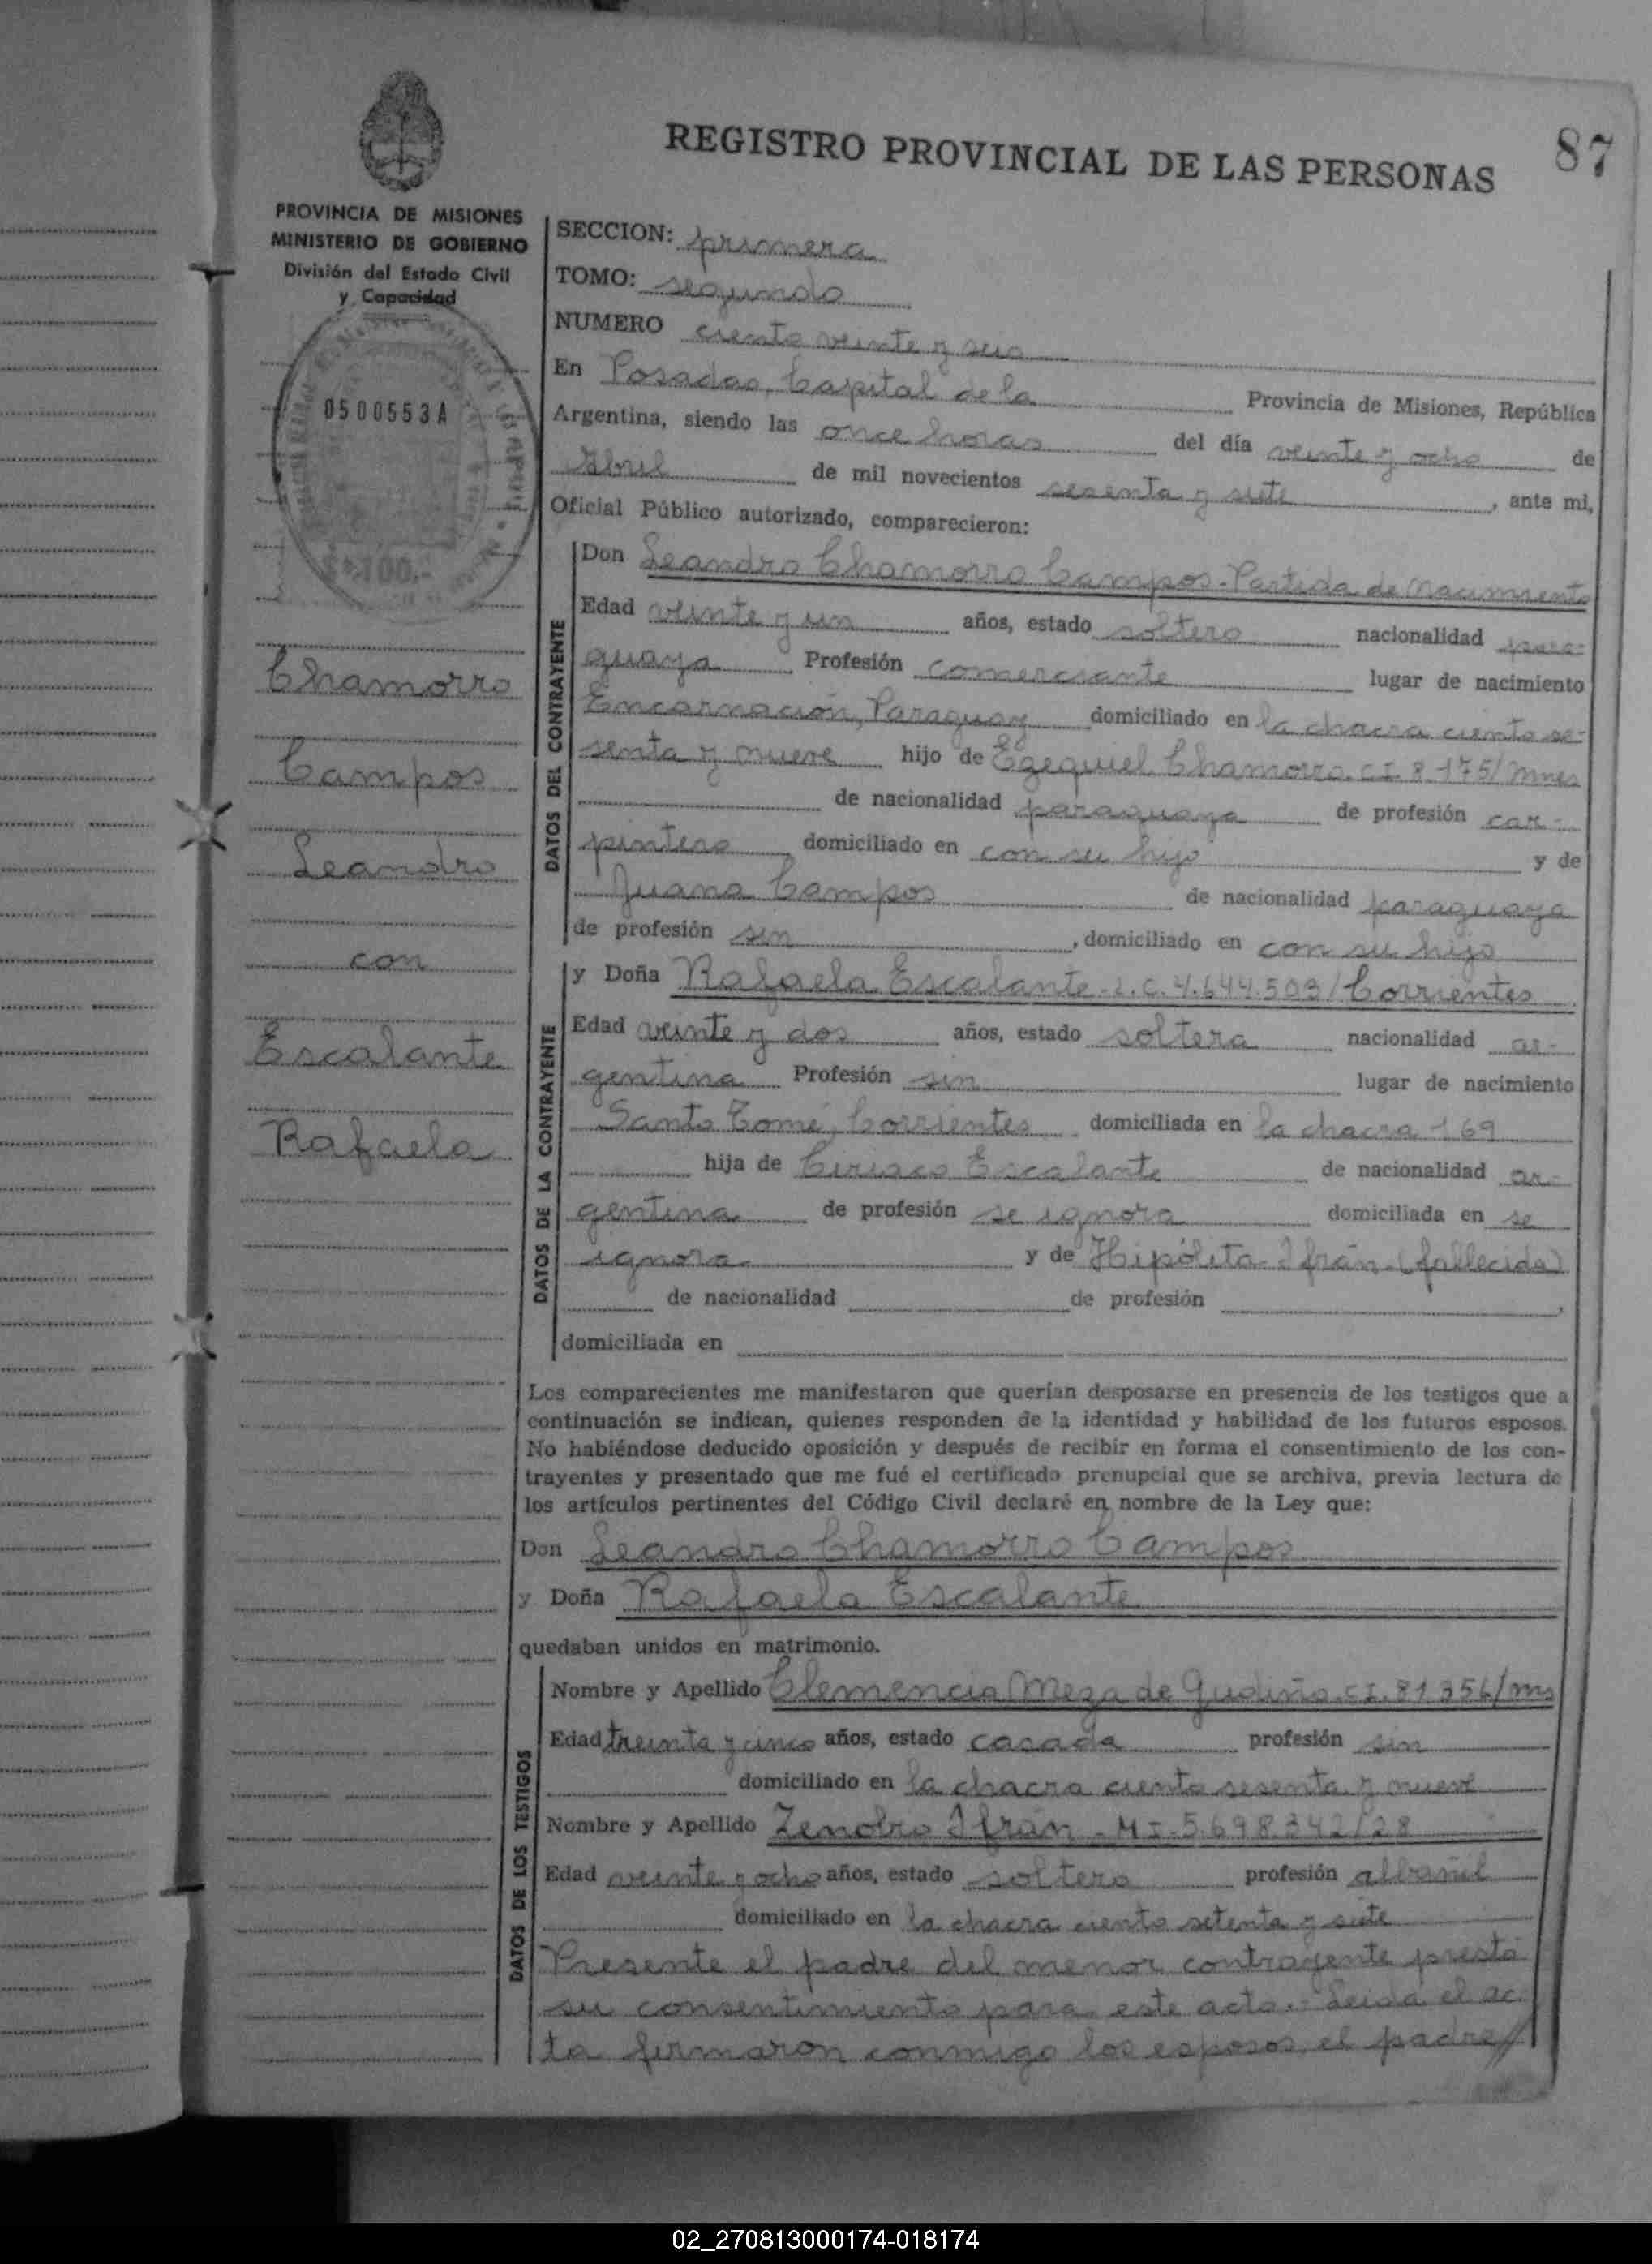 REGISTRO PROVINCIAL DE LAS PERSONAS
87
PROVINCIA DE MISIONES
MINISTERIO DE GOBIERNO
División del Estado Civil
y Capacidad
0500553A
$ 100.-
Chamorro
Campos
Leandro
con
Escalante
Rafaela
SECCION: primera
TOMO: segundo
NUMERO ciento veinte y seis
En Posadas, Capital de la Provincia de Misiones, República
Argentina, siendo las once horas del día veinte y ocho de
Abril de mil novecientos sesenta y siete, ante mi,
Oficial Público autorizado, comparecieron:
DATOS DEL CONTRAYENTE
Don Leandro Chamorro Campos-Partida de Nacimiento
Edad veinte y un años, estado soltero nacionalidad para-
guaya Profesión comerciante lugar de nacimiento
Encarnación, Paraguay domiciliado en la chacra ciento se-
senta y nueve hijo de Ezequiel Chamorro. C.I. 8.175/Mnes
de nacionalidad paraguaya de profesión car-
pintero domiciliado en con su hijo y de
Juana Campos de nacionalidad paraguaya
de profesión sin, domiciliado en con su hijo
DATOS DE LA CONTRAYENTE
y Doña Rafaela Escalante-L.C. 4.644.503/Corrientes
Edad veinte y dos años, estado soltera nacionalidad ar-
gentina Profesión sin lugar de nacimiento
Santo Tomé, Corrientes domiciliada en la chacra 169
hija de Ciriaco Escalante de nacionalidad ar-
gentina de profesión se ignora domiciliada en se
ignora y de Hipólita Ifrán-(fallecida)
de nacionalidad de profesión ,
domiciliada en
Los comparecientes me manifestaron que querían desposarse en presencia de los testigos que a
continuación se indican, quienes responden de la identidad y habilidad de los futuros esposos.
No habiéndose deducido oposición y después de recibir en forma el consentimiento de los con-
trayentes y presentado que me fué el certificado prenupcial que se archiva, previa lectura de
los artículos pertinentes del Código Civil declaré en nombre de la Ley que:
Don Leandro Chamorro Campos
y Doña Rafaela Escalante
quedaban unidos en matrimonio.
DATOS DE LOS TESTIGOS
Nombre y Apellido Clemencia Meza de Gudiño. C.I. 81356/Mns
Edad treinta y cinco años, estado casada profesión sin
domiciliado en la chacra ciento sesenta y nueve
Nombre y Apellido Zenobio Ifrán-M I-5.698.342/28
Edad veinte y ocho años, estado soltero profesión albañil
domiciliado en la chacra ciento setenta y siete
Presente el padre del menor contrayente prestó
su consentimiento para este acto.- Leida el ac
ta firmaron conmigo los esposos, el padre//
02_270813000174-018174